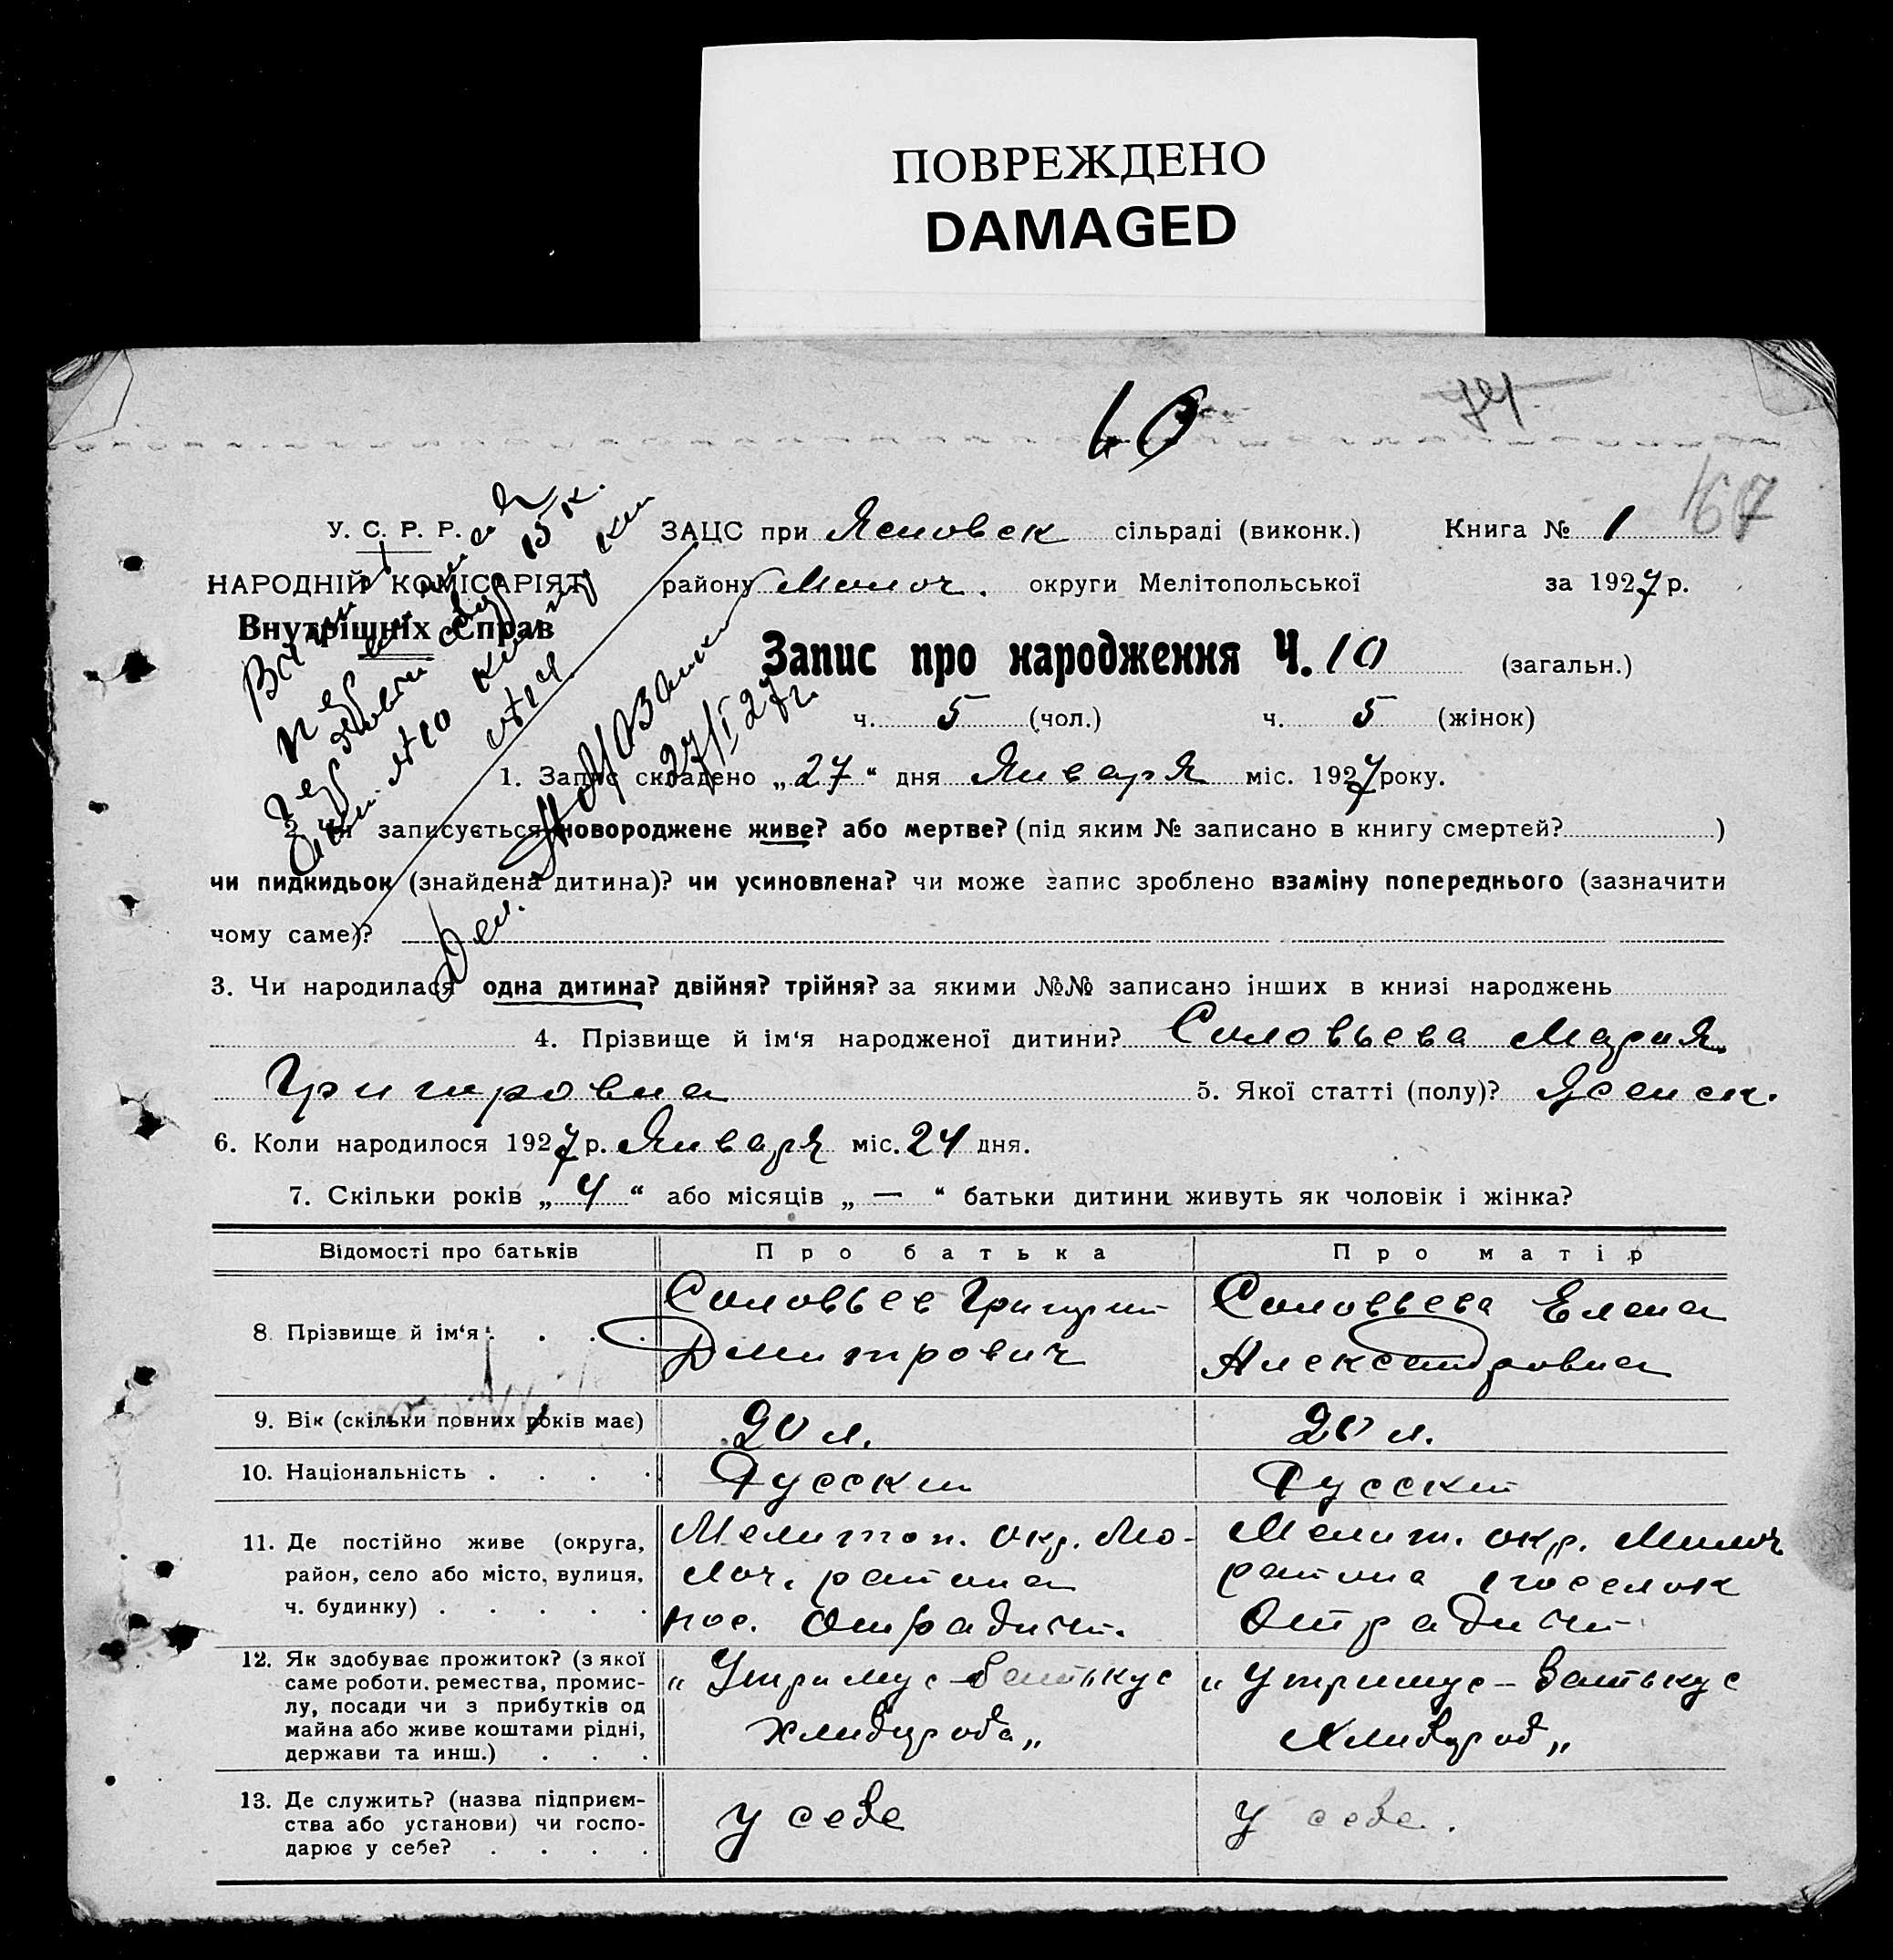 ПОВРЕЖДЕНО
DAMAGED
У. С. Р. Р. ЗАЦС при Ясновск сільраді (виконк.) Книга № 1
НАРОДНІЙ КОМІСАРІЯТ району Молоч. округи Мелітопольської за 1927 р.
Внутрішніх Справ
Запис про народження Ч. 10 (загальн.)
ч. 5 (чол.) ч. 5 (жінок)
27/I 27 г.
1. Запис складено „27“ дня Января міс. 1927 року.
2. Чи записується новороджене живе? або мертве? (під яким № записано в книгу смертей? )
чи пидкидьок (знайдена дитина)? чи усиновлена? чи може запис зроблено взаміну попереднього (зазначити
чому саме)?
3. Чи народилася одна дитина? двійня? трійня? за якими №№ записано інших в книзі народжень
4. Прізвище й ім‘я народженої дитини? Соловьева Мария
Григоровна 5. Якої статті (полу)? Женск.
6. Коли народилося 1927 р. Января міс. 24 дня.
7. Скільки років „ 4 “ або місяців „ — “ батьки дитини живуть як чоловік і жінка?
Відомості про батьків Про батька Про матір
8. Прізвище й ім‘я . . . . Соловьев Григорий Дмитрович Соловьева Елена Александровна
9. Вік (скільки повних років має) 20 л. 20 л.
10. Національність . . . . Русский Русский
11. Де постійно живе (округа, район, село або місто, вулиця, ч. будинку) . . . . . Мелитоп. окр. Молоч. района пос. Отрадин. Мелит. окр. Молоч района поселок Отрадин
12. Як здобуває прожиток? (з якої саме роботи, ремества, промислу, посади чи з прибутків од майна або живе коштами рідні, держави та инш.) . . . „ Утримує батькус хлибороба „ „ Утримує батькус хлибороб „
13. Де служить? (назва підприємства або установи) чи господарює у себе? . . . . у себе у себе.